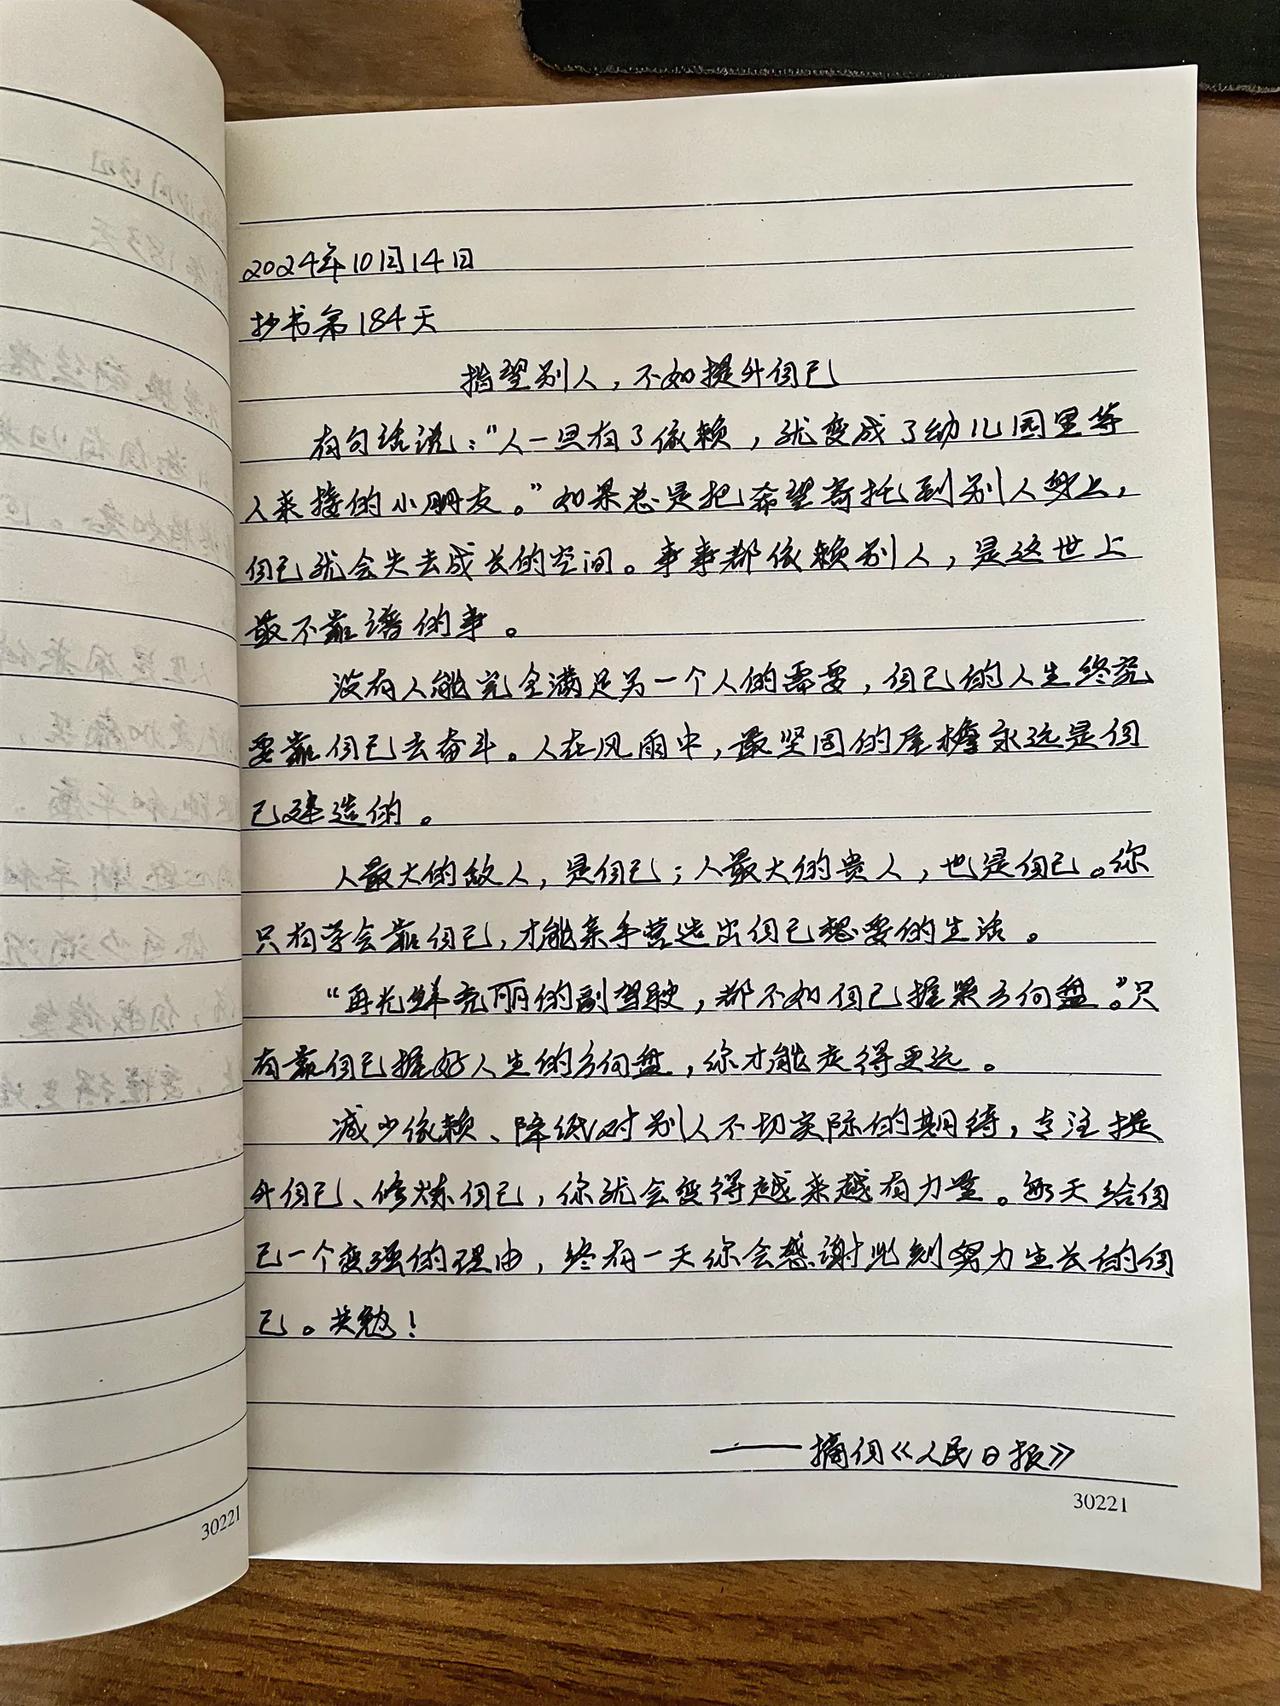 2024年10月14日
抄书第184天
指望别人，不如提升自己
有句话说：“人一旦有了依赖，就变成了幼儿园里等
人来接的小朋友。”如果总是把希望寄托到别人身上，
自己就会失去成长的空间。事事都依赖别人，是这世上
最不靠谱的事。
没有人能完全满足另一个人的需要，自己的人生终究
要靠自己去奋斗。人在风雨中，最坚固的屋檐永远是自
己建造的。
人最大的敌人，是自己；人最大的贵人，也是自己。你
只有学会靠自己，才能亲手营造出自己想要的生活。
“再光鲜亮丽的副驾驶，都不如自己握紧方向盘。”只
有靠自己握好人生的方向盘，你才能走得更远。
减少依赖、降低对别人不切实际的期待，专注提
升自己、修炼自己，你就会变得越来越有力量。每天给自
己一个变强的理由，终有一天你会感谢此刻努力生长的自
己。共勉！
——摘自《人民日报》
30221
30221